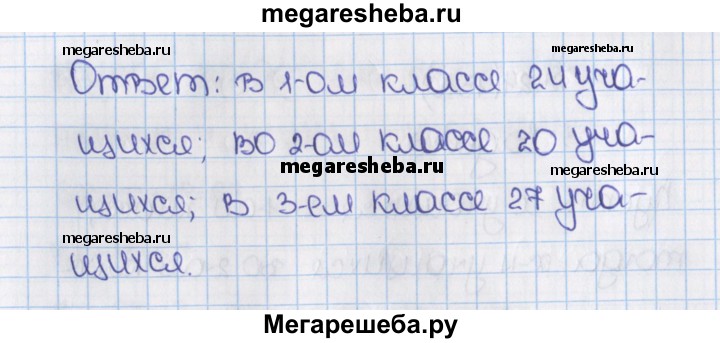 megaresheba.ru
megaresheba.ru megaresheba.ru
Ответ: в 1-ом классе 24 уча-
щихся; во 2-ом классе 20 уча-
megaresheba.ru megaresheba.ru
щихся; в 3-ем классе 27 уча-
megaresheba.ru
щихся.
Мегарешеба.ру